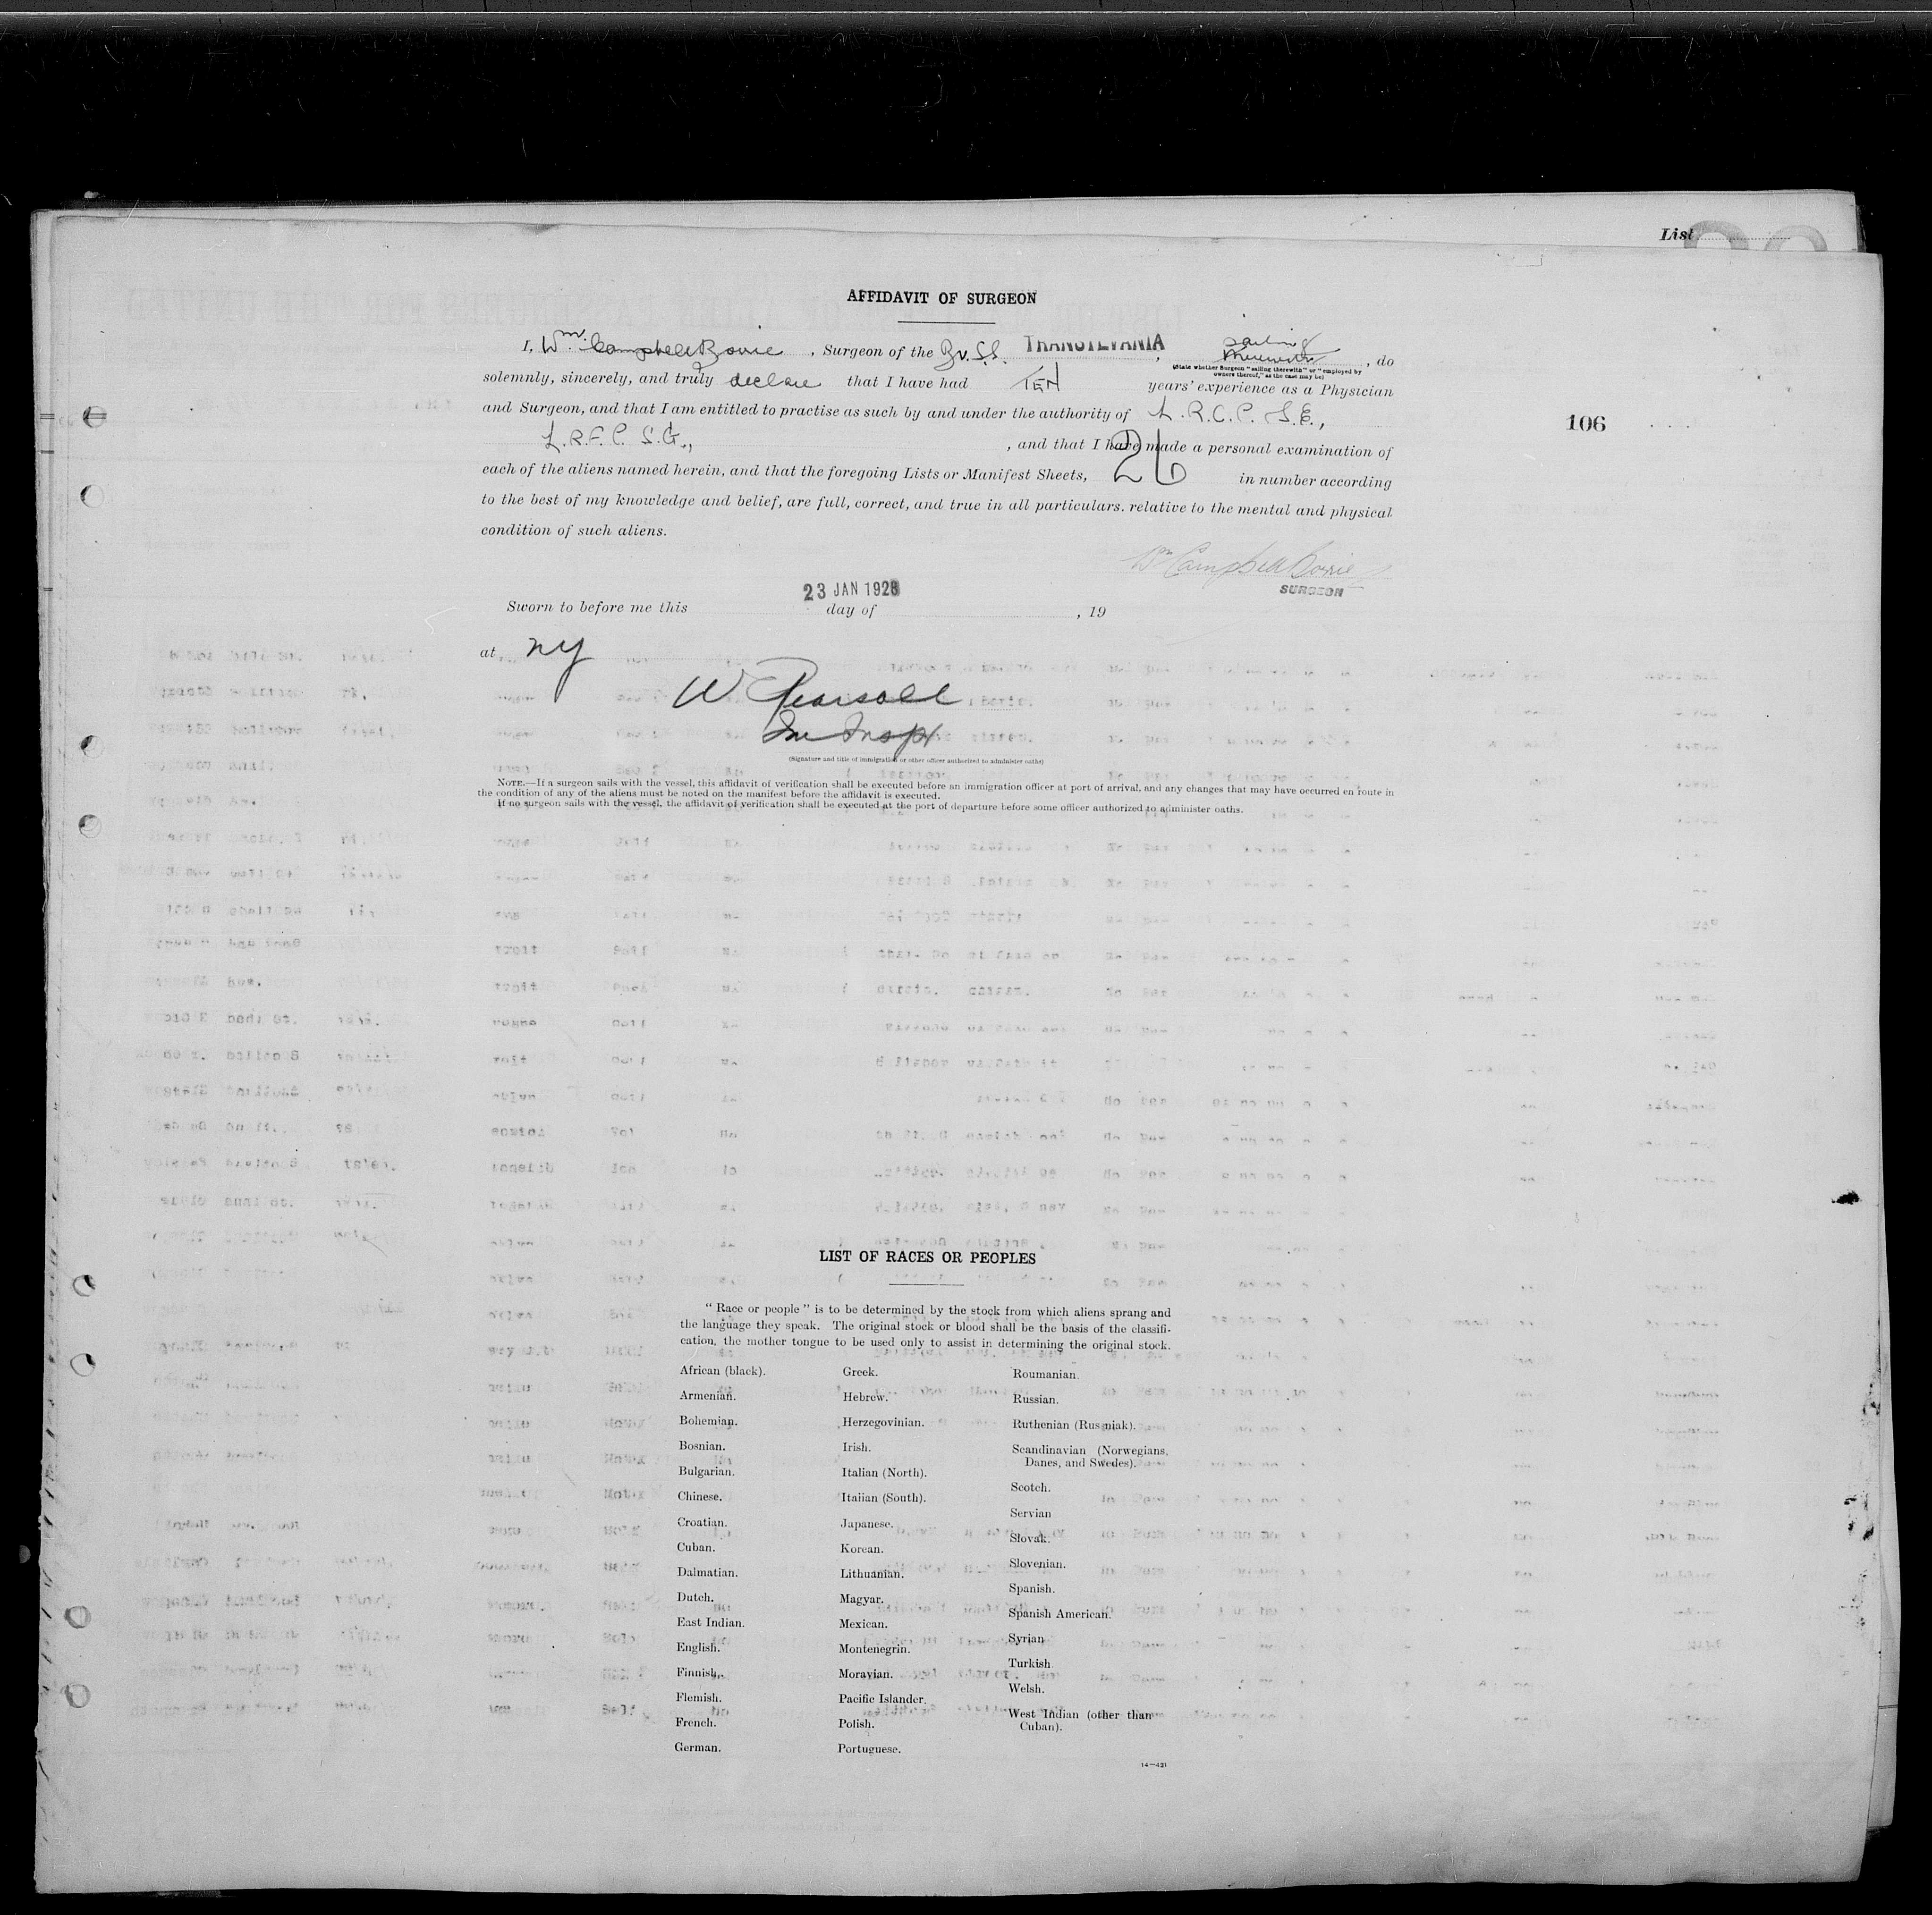 List
AFFIDAVIT OF SURGEON
I, Wm. Campbell Bowie, Surgeon of the Br. S.S. TRANSYLVANIA, sailing therewith, do
(State whether Surgeon "sailing therewith" or "employed by
owners thereof," as the case may be)
solemnly, sincerely, and truly declare that I have had TEN years' experience as a Physician
and Surgeon, and that I am entitled to practise as such by and under the authority of L.R.C.P. S.E.,
106
L.R.F.P. S.G., , and that I have made a personal examination of
each of the aliens named herein, and that the foregoing Lists or Manifest Sheets, 26 in number according
to the best of my knowledge and belief, are full, correct, and true in all particulars. relative to the mental and physical
condition of such aliens.
Wm Campbell Bowie
SURGEON
23 JAN 1928
Sworn to before me this day of , 19
at NY
W Pearsall
Im Insp
(Signature and title of immigration or other officer authorized to administer oaths)
NOTE.—If a surgeon sails with the vessel, this affidavit of verification shall be executed before an immigration officer at port of arrival, and any changes that may have occurred en route in
the condition of any of the aliens must be noted on the manifest before the affidavit is executed.
If no surgeon sails with the vessel, the affidavit of verification shall be executed at the port of departure before some officer authorized to administer oaths.
LIST OF RACES OR PEOPLES
"Race or people" is to be determined by the stock from which aliens sprang and
the language they speak. The original stock or blood shall be the basis of the classifi-
cation, the mother tongue to be used only to assist in determining the original stock.
African (black).
Armenian.
Bohemian.
Bosnian.
Bulgarian.
Chinese.
Croatian.
Cuban.
Dalmatian.
Dutch.
East Indian.
English.
Finnish.
Flemish.
French.
German.
Greek.
Hebrew.
Herzegovinian.
Irish.
Italian (North).
Italian (South).
Japanese.
Korean.
Lithuanian.
Magyar.
Mexican.
Montenegrin.
Moravian.
Pacific Islander.
Polish.
Portuguese.
Roumanian.
Russian.
Ruthenian (Russniak).
Scandinavian (Norwegians,
Danes, and Swedes).
Scotch.
Servian
Slovak.
Slovenian.
Spanish.
Spanish American.
Syrian
Turkish.
Welsh.
West Indian (other than
Cuban).
14—421